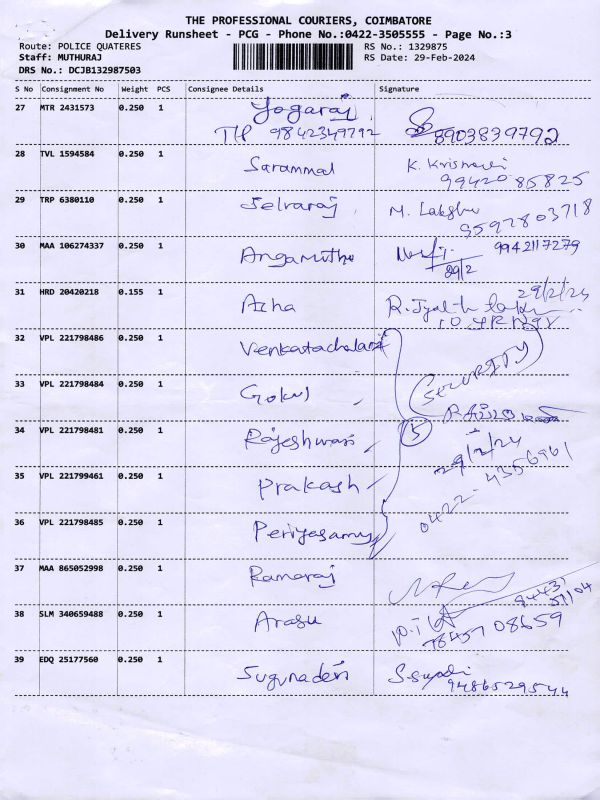 THE PROFESSIONAL COURIERS, COIMBATORE
Delivery Runsheet - PCG - Phone No.:0422-3505555 - Page No.:3
Route: POLICE QUATERES RS No.: 1329875
Staff: MUTHURAJ RS Date: 29-Feb-2024
DRS No.: DCJB132987503
S No Consignment No Weight PCS Consignee Details Signature
27 MTR 2431573 0.250 1 Yogaraj
T/P 9842349792 8903839792
28 TVL 1594584 0.250 1 Sarammal K. Krishnaveni
9942085825
29 TRP 6380110 0.250 1 Selvaraj M. Lakshu
9597803718
30 MAA 106274337 0.250 1 Angamuthu 9942117279
29/2
31 HRD 20420218 0.155 1 Asha 29/2/24
R. Jyothi
32 VPL 221798486 0.250 1 Venkatachalam
33 VPL 221798484 0.250 1 Gokul SECURITY
34 VPL 221798481 0.250 1 Rajeshwari 5
29/2/24
35 VPL 221799461 0.250 1 Prakash 0422-4356961
36 VPL 221798485 0.250 1 Periyasamy
37 MAA 865052998 0.250 1 Ramaraj
38 SLM 340659488 0.250 1 Arasu 94431
57104
7845708659
39 EDQ 25177560 0.250 1 Sugunadevi
9486529544